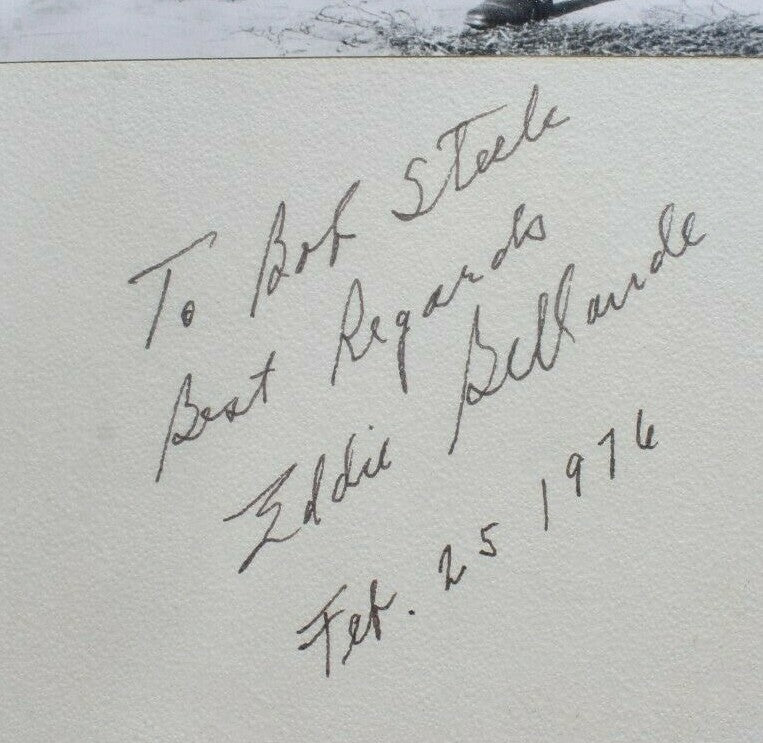 To Bob Steele
Best Regards
Eddie Bellande
Feb. 25 1976